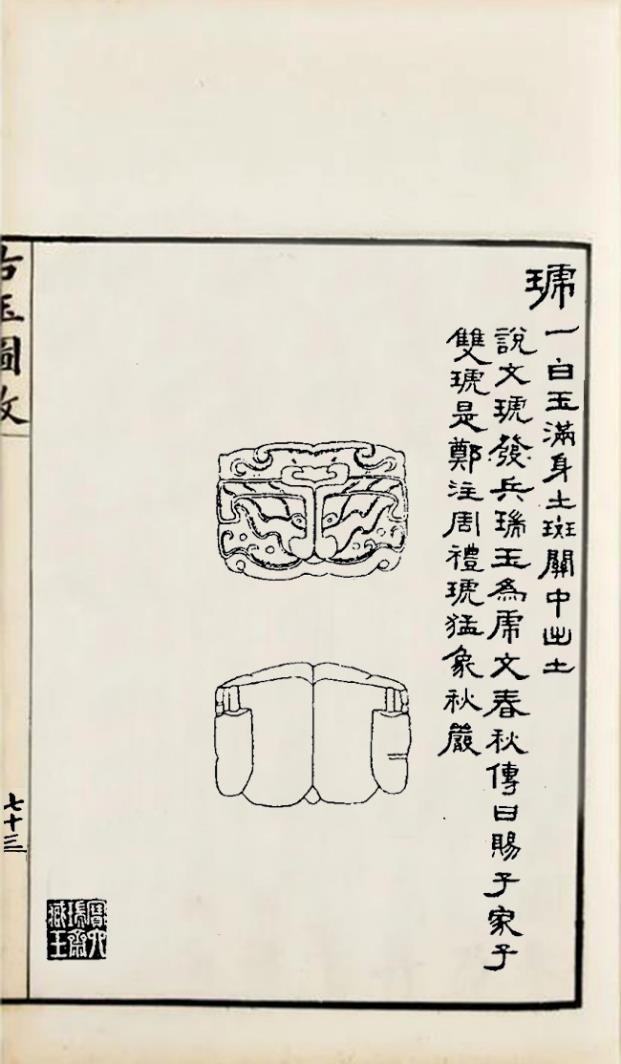 琥一白玉滿身土斑關中出土
說文琥發兵瑞玉為虎文春秋傳曰賜子家子
雙琥是鄭注周禮琥猛象秋嚴
古玉圖攷
七十三
寶六
瑞齋
藏玉